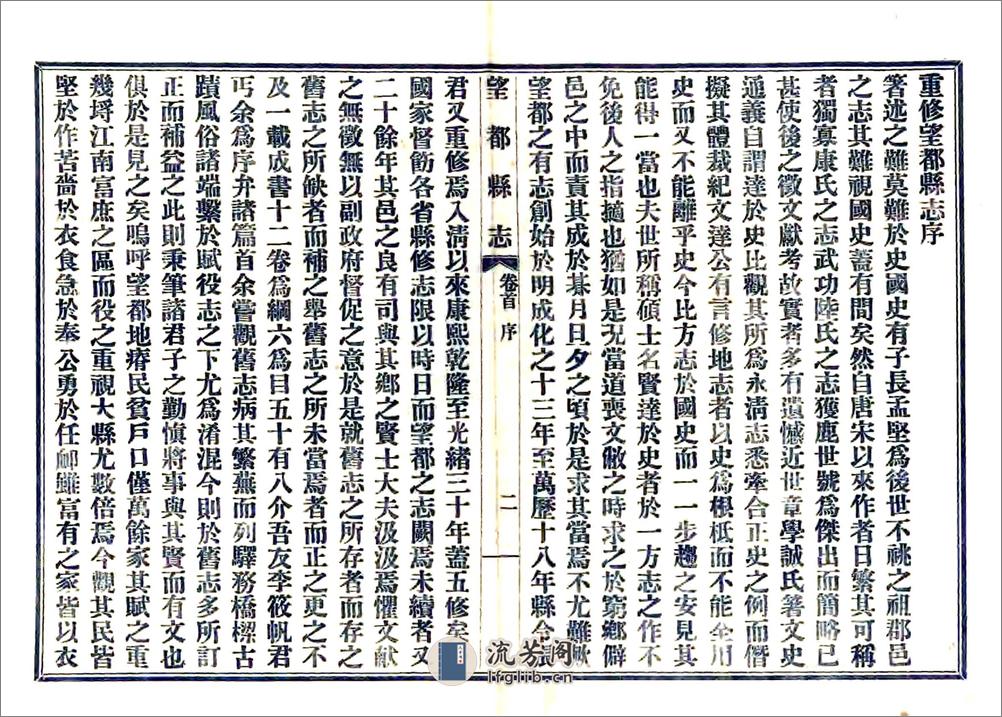 重修望都縣志序
箸述之難莫難於史國史有子長孟堅爲後世不祧之祖郡邑
之志其難視國史蓋有間矣然自唐宋以來作者日繁其可稱
者獨寡康氏之志武功陸氏之志獲鹿世號爲傑出而簡略已
甚使後之徵文獻考故實者多有遺憾近世章學誠氏箸文史
通義自謂達於史比觀其所爲永清志悉牽合正史之例而僭
擬其體裁紀文達公有言修地志者以史爲根柢而不能全用
史而又不能離乎史今比方志於國史而一一步趨之安見其
能得一當也夫世所稱碩士名賢達於史者於一方志之作不
免後人之指擿也猶如是况當道喪文敝之時求之於窮鄉僻
邑之中而責其成於朞月日夕之頃於是求其當焉不尤難歟
望都之有志創始於明成化之十三年至萬歷十八年縣令張
望都縣志 卷首 序 二
君又重修焉入清以來康熙乾隆至光緒三十年蓋五修矣
國家督飭各省縣修志限以時日而望都之志闕焉未續者又
二十餘年其邑之良有司與其鄉之賢士大夫汲汲焉懼文獻
之無徵無以副政府督促之意於是就舊志之所存者而存之
舊志之所缺者而補之舉舊志之所未當焉者而正之更之不
及一載成書十二卷爲綱六爲目五十有八介吾友李筱帆君
丐余爲序弁諸篇首余嘗觀舊志病其繁蕪而列驛務橋樑古
蹟風俗諸端繫於賦役志之下尤爲淆混今則於舊志多所訂
正而補益之此則秉筆諸君子之勤愼將事與其賢而有文也
俱於是見之矣嗚呼望都地瘠民貧戶口僅萬餘家其賦之重
幾埒江南富庶之區而役之重視大縣尤數倍焉今觀其民皆
堅於作苦嗇於衣食急於奉公勇於任卹雖富有之家皆以衣
流芳阁
lfglib.cn